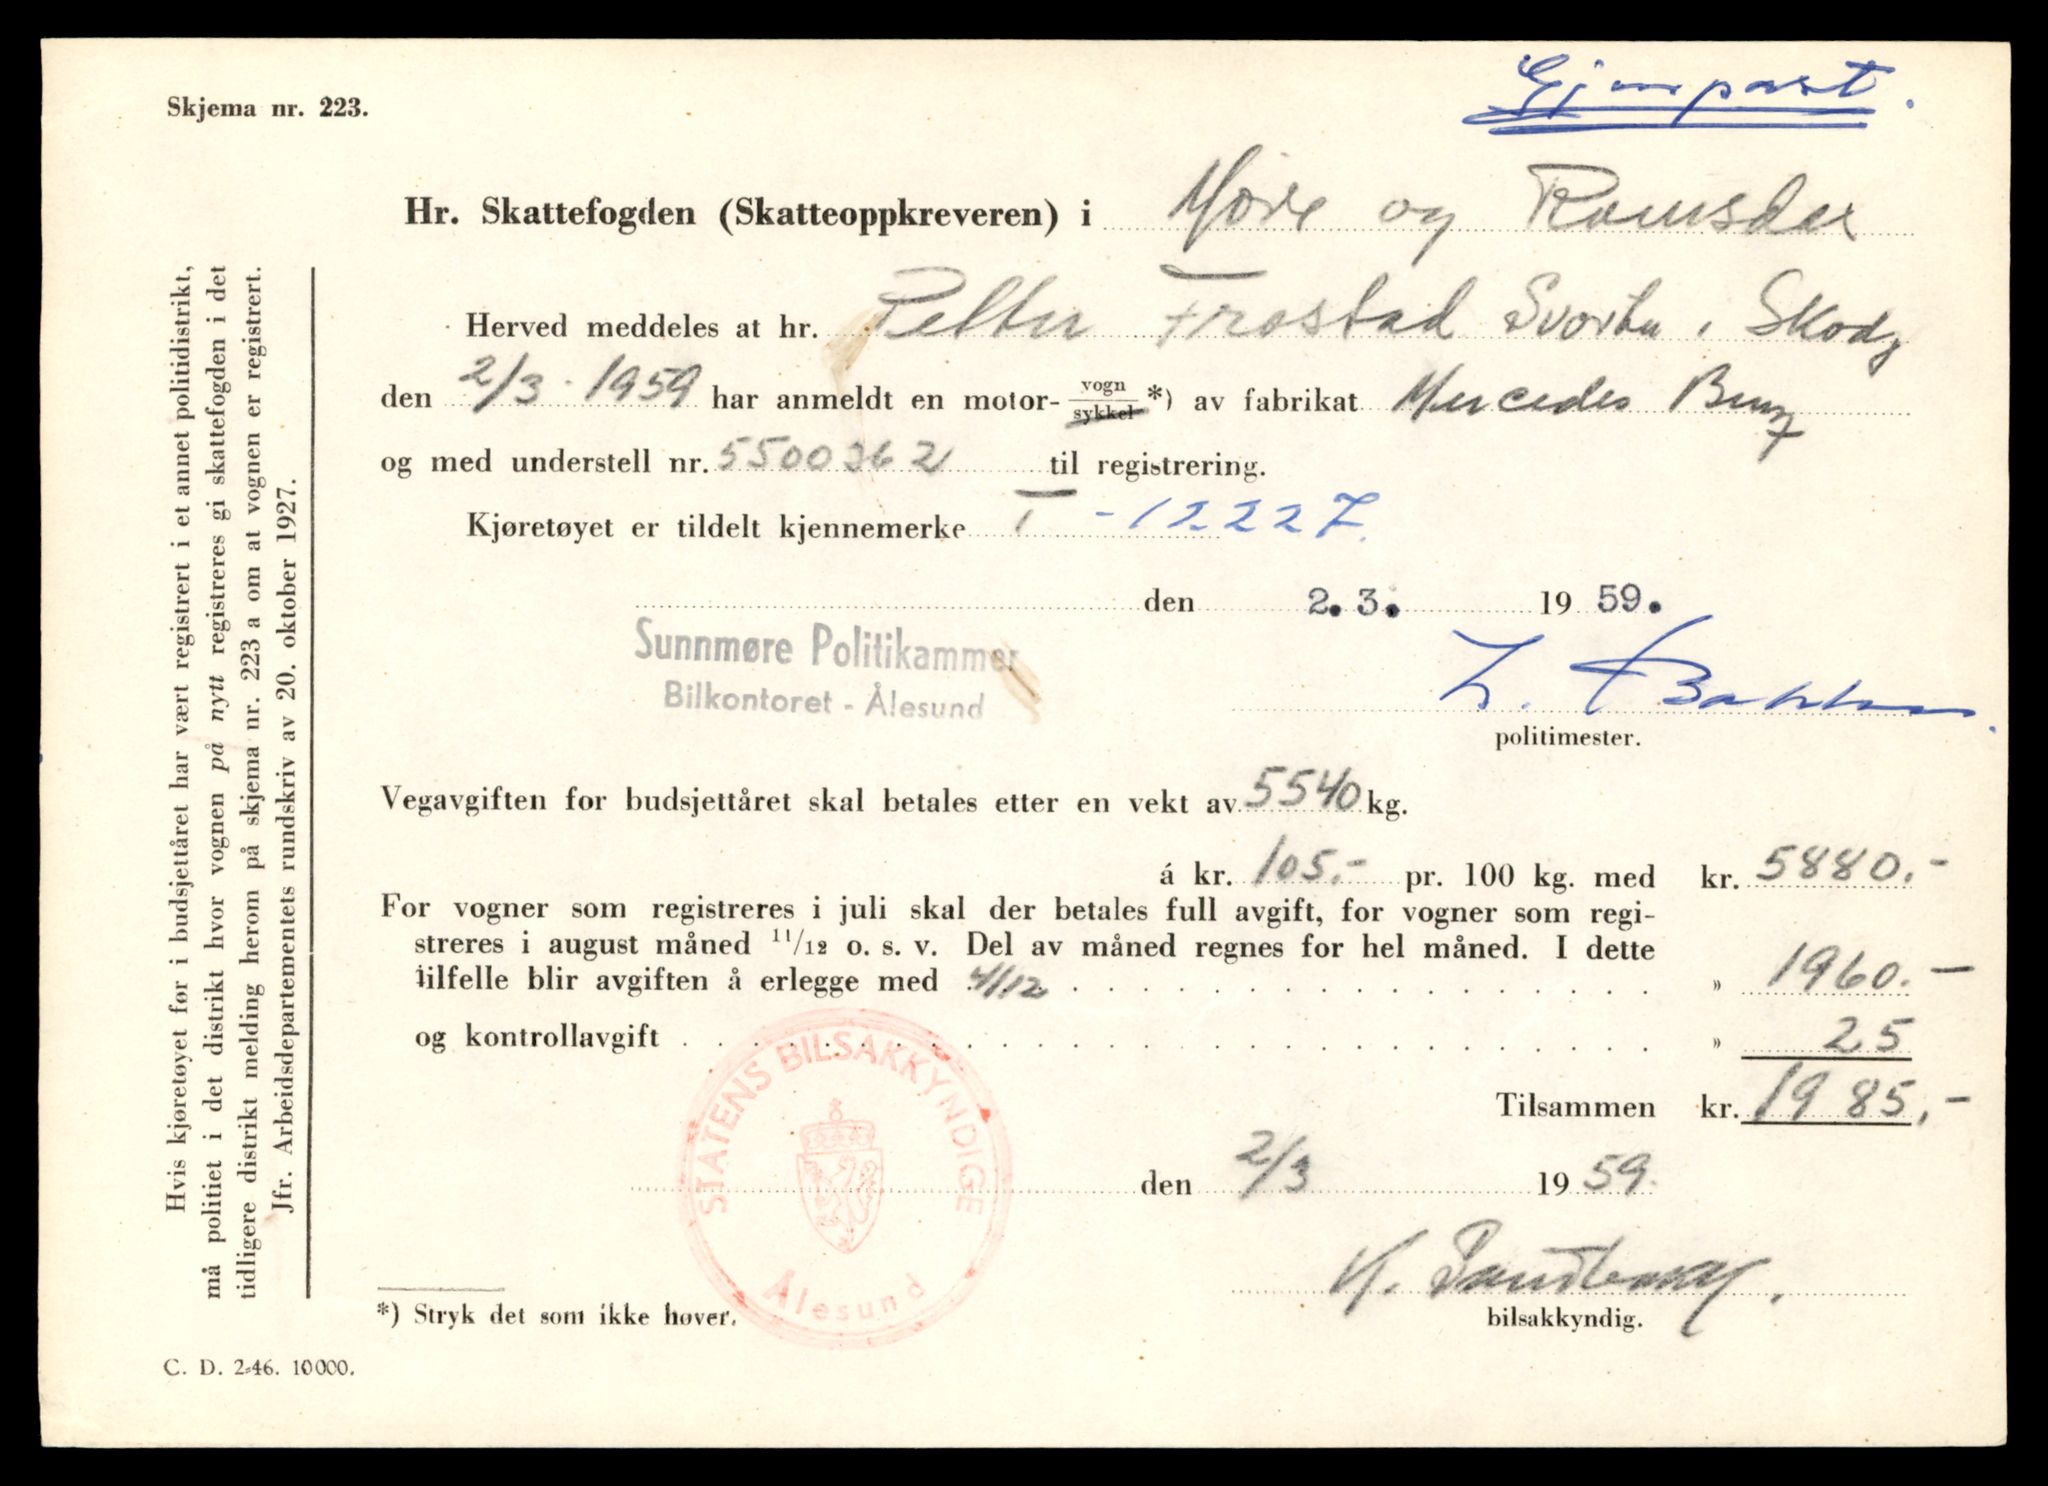 Gjenpart.
Skjema nr. 223.
Hr. Skattefogden (Skatteoppkreveren) i Møre og Romsdal
Herved meddeles at hr. Petter Frostad Svortu, Skodj
den 2/3 1959 har anmeldt en motor-vogn sykkel *) av fabrikat Mercedes Benz
og med understell nr. 5500362 til registrering.
Kjøretøyet er tildelt kjennemerke T -12227.
den 2.3. 1959.
Sunnmøre Politikammer
Bilkontoret - Ålesund
politimester.
Vegavgiften for budsjettåret skal betales etter en vekt av 5540 kg.
á kr. 105.- pr. 100 kg. med kr. 5880.-
For vogner som registreres i juli skal der betales full avgift, for vogner som regi-
streres i august måned 11/12 o. s. v. Del av måned regnes for hel måned. I dette
tilfelle blir avgiften å erlegge med 4/12 . . . . . . . . . . . . . . . . . . » 1960.-
og kontrollavgift . . . . . . . . . . . . . . . . . . . . . . . . . . » 25
Tilsammen kr. 1985,-
STATENS BILSAKKYNDIGE
Ålesund
den 2/3 1959.
bilsakkyndig.
*) Stryk det som ikke høver.
C. D. 2-46. 10000.
Hvis kjøretøyet før i budsjettåret har vært registrert i et annet politidistrikt,
må politiet i det distrikt hvor vognen på nytt registreres gi skattefogden i det
tidligere distrikt melding herom på skjema nr. 223 a om at vognen er registrert.
Jfr. Arbeidsdepartementets rundskriv av 20. oktober 1927.